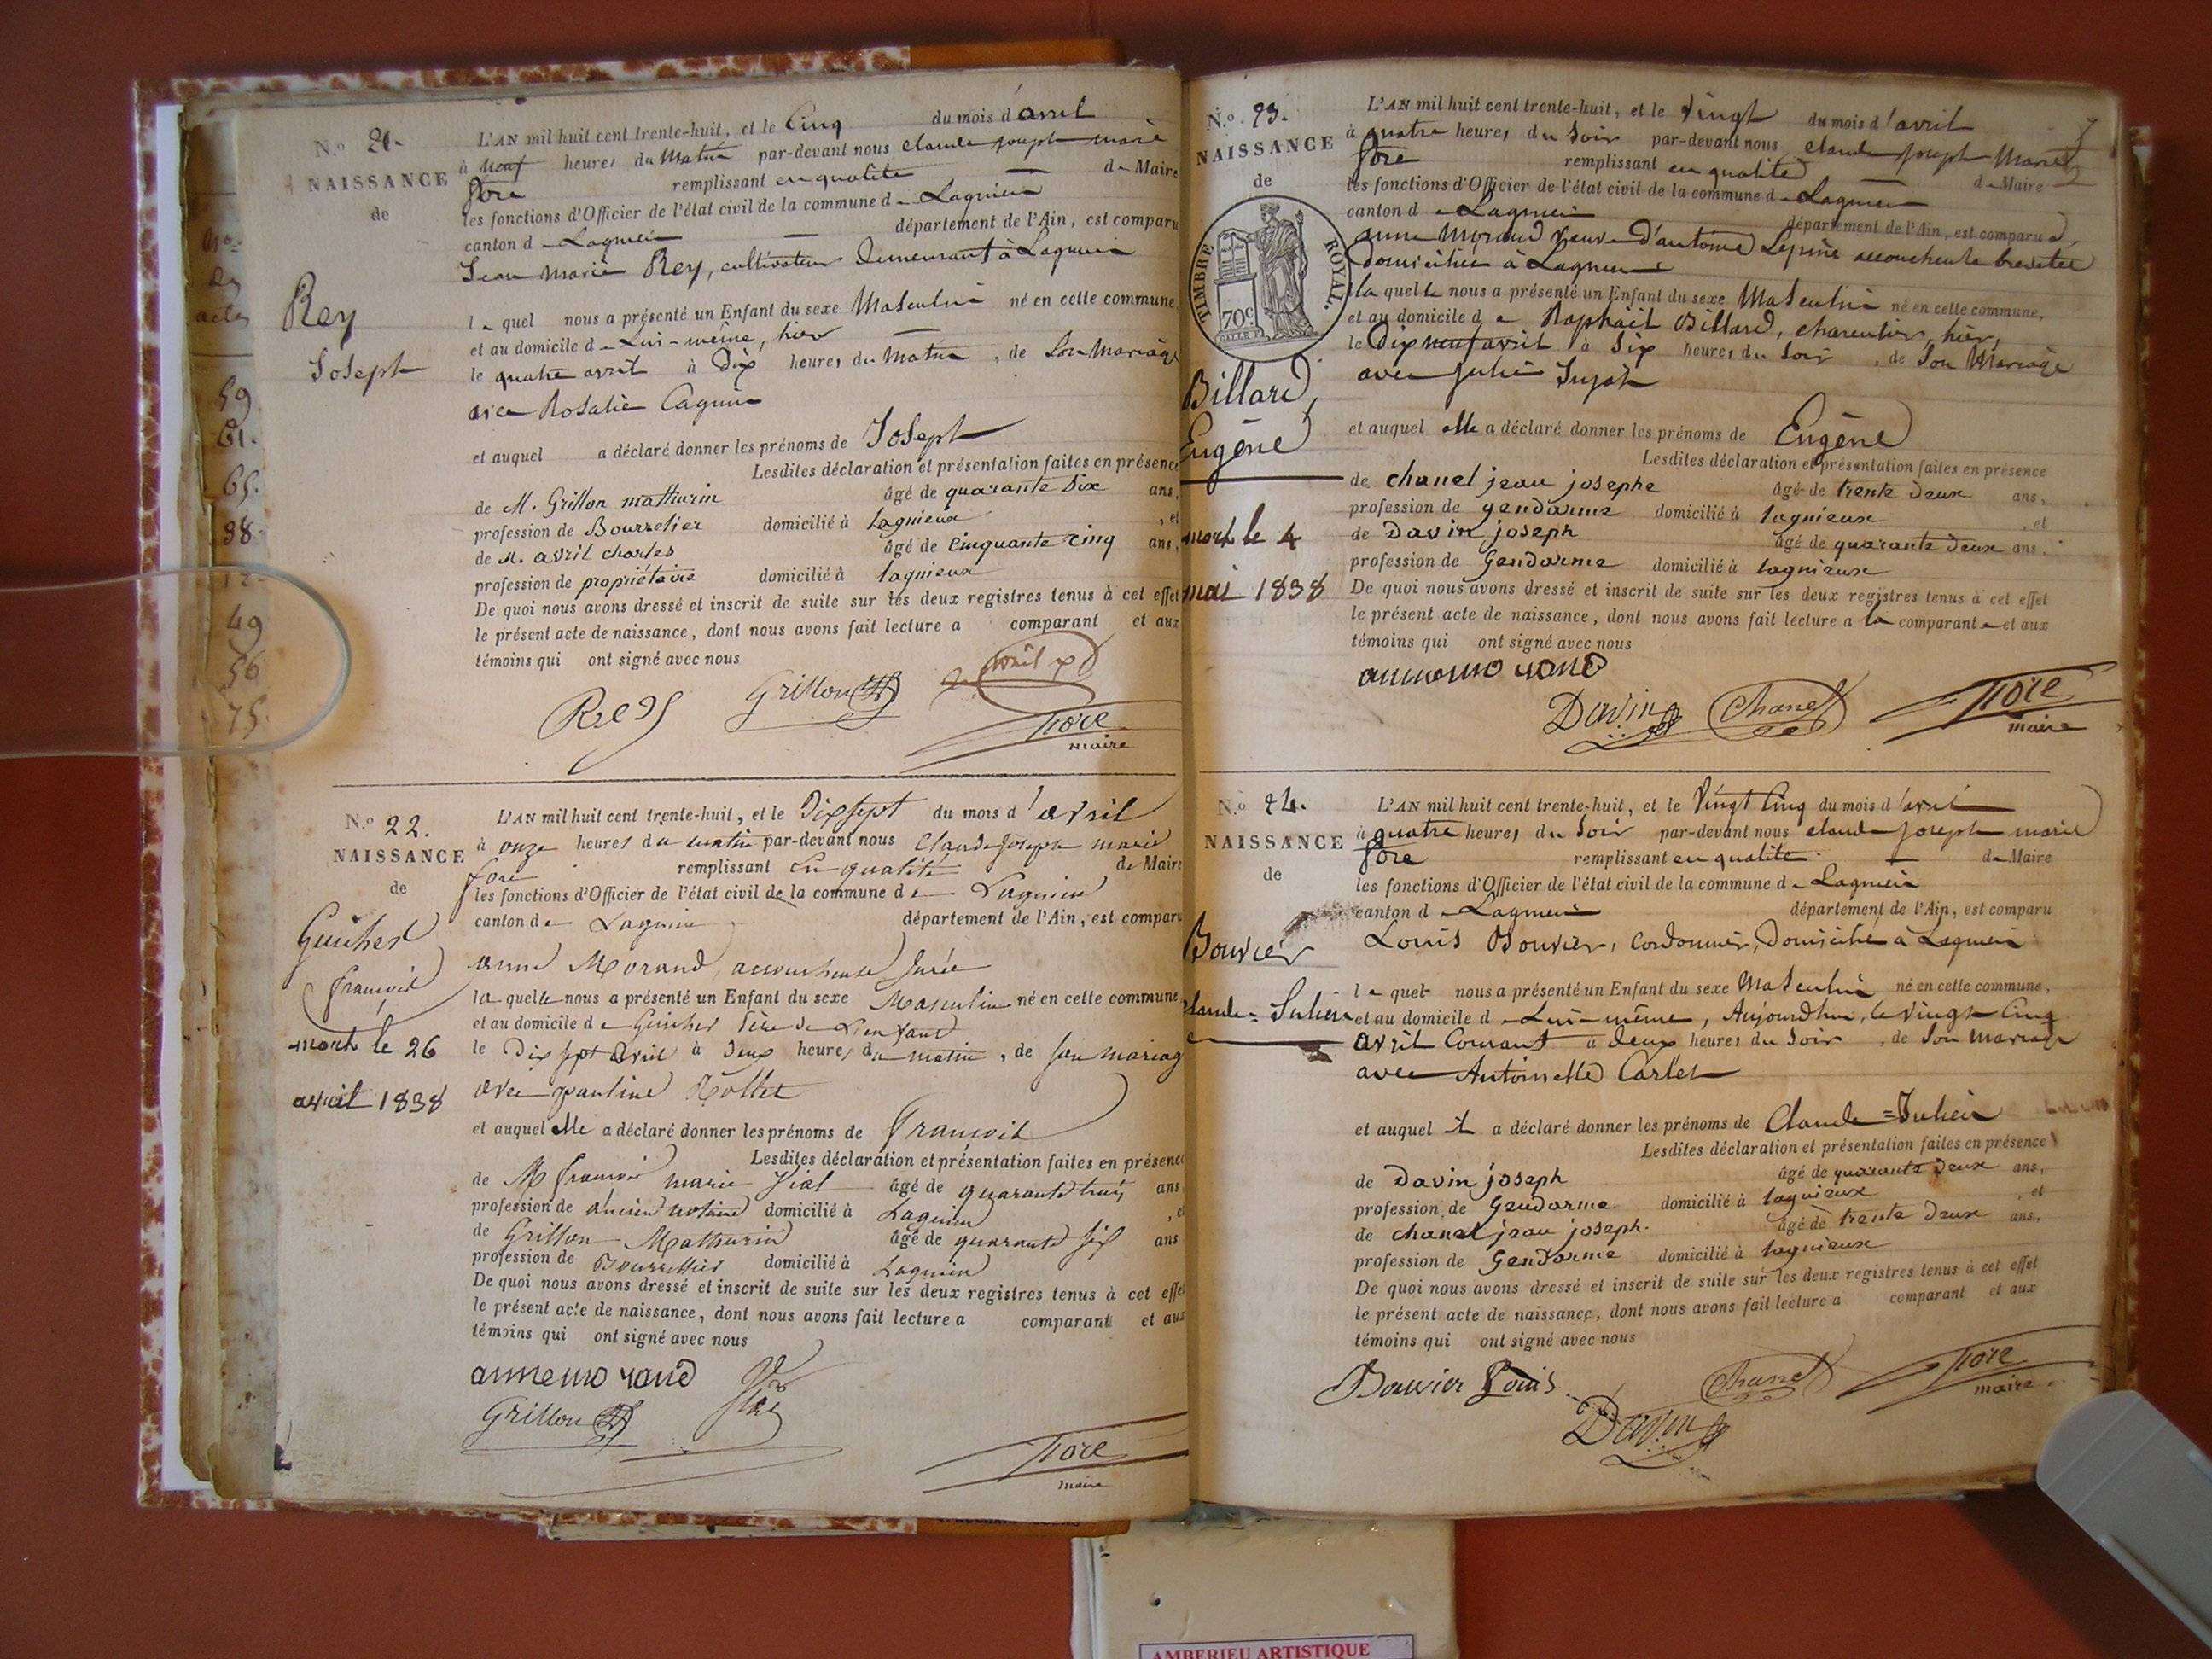 N.o 21.
NAISSANCE
de
Rey
Joseph
L'AN mil huit cent trente-huit, et le Cinq du mois d'avril
à neuf heures du Matin par-devant nous Claude joseph marie
fore remplissant en qualité de Maire
les fonctions d'Officier de l'état civil de la commune de Lagnieu
canton de Lagnieu département de l'Ain, est comparu
Jean Marie Rey, cultivateur demeurant à Lagnieu
le quel nous a présenté un Enfant du sexe Masculin né en cette commune,
et au domicile de Lui-même, hier
le quatre avril à Dix heures du matin, de Son Mariage
avec Rosalie
et auquel a déclaré donner les prénoms de Joseph
Lesdites déclaration et présentation faites en présence
de M. Grillon mathurin âgé de quarante six ans,
profession de Bourrelier domicilié à lagnieux, et
de M. avril charles âgé de Cinquante cinq ans,
profession de propriétaire domicilié à lagnieux
De quoi nous avons dressé et inscrit de suite sur les deux registres tenus à cet effet
le présent acte de naissance, dont nous avons fait lecture a comparant et aux
témoins qui ont signé avec nous
Rey Grillon avril
fore
maire
59
61.
65.
38.
12.
49
56
75.
N.o 22.
NAISSANCE
de
Guicher
françois
mort le 26
avril 1838
L'AN mil huit cent trente-huit, et le Dix sept du mois d'avril
à onze heures du matin par-devant nous Claude Joseph marie
fore remplissant en qualité de Maire
les fonctions d'Officier de l'état civil de la commune de Lagnieu
canton de Lagnieu département de l'Ain, est comparu
anne Morand, accoucheuse Jurée
la quelle nous a présenté un Enfant du sexe Masculin né en cette commune,
et au domicile de Guicher père de L'enfant
le Dix sept avril à deux heures du matin, de son mariage
avec pauline
et auquel elle a déclaré donner les prénoms de françois
Lesdites déclaration et présentation faites en présence
de M françois marie âgé de quarante trois ans
profession de ancien notaire domicilié à Lagnieu
de Grillon Mathurin âgé de quarante six ans
profession de Bourrellier domicilié à Lagnieu
De quoi nous avons dressé et inscrit de suite sur les deux registres tenus à cet effet
le présent acte de naissance, dont nous avons fait lecture a comparant et aux
témoins qui ont signé avec nous
anne morand
Grillon
fore
maire
N.o 23.
NAISSANCE
de
TIMBRE ROYAL.
70c
Billard,
Eugène
mort le 4
mai 1838
L'AN mil huit cent trente-huit, et le Vingt du mois d'avril
à quatre heures du Soir par-devant nous claude joseph Marie
fore remplissant en qualité de Maire
les fonctions d'Officier de l'état civil de la commune de Lagnieu
canton de Lagnieu département de l'Ain, est comparue
anne Morand veuve d'antoine Lépine accoucheuse brevetée
domiciliée à Lagnieu
la quelle nous a présenté un Enfant du sexe Masculin né en cette commune,
et au domicile de Raphaël Billard, charcutier, hier,
le Dix neuf avril à Six heures du Soir, de Son Mariage
avec Julie
et auquel elle a déclaré donner les prénoms de Eugène
Lesdites déclaration et présentation faites en présence
de chanel jean josephe âgé de trente deux ans,
profession de gendarme domicilié à lagnieux, et
de Davin joseph âgé de quarante deux ans,
profession de Gendarme domicilié à lagnieux
De quoi nous avons dressé et inscrit de suite sur les deux registres tenus à cet effet
le présent acte de naissance, dont nous avons fait lecture a la comparante et aux
témoins qui ont signé avec nous
anne morand
Davin Chanel fore
maire
N.o 24.
NAISSANCE
de
Bouvier
Claude=Julien
L'AN mil huit cent trente-huit, et le Vingt Cinq du mois d'avril
à quatre heures du Soir par-devant nous claude joseph marie
fore remplissant en qualité de Maire
les fonctions d'Officier de l'état civil de la commune de Lagnieu
canton de Lagnieu département de l'Ain, est comparu
Louis Bouvier, Cordonnier, domicilié à Lagnieu
le quel nous a présenté un Enfant du sexe Masculin né en cette commune,
et au domicile de Lui-même, Aujourdhui, le vingt Cinq
avril Courant à deux heures du Soir, de Son Mariage
avec Antoinette Carlet
et auquel il a déclaré donner les prénoms de Claude=Julien
Lesdites déclaration et présentation faites en présence
de Davin joseph âgé de quarante deux ans,
profession de Gendarme domicilié à lagnieux, et
de chanel jean joseph. âgé de trente deux ans,
profession de Gendarme domicilié à lagnieux
De quoi nous avons dressé et inscrit de suite sur les deux registres tenus à cet effet
le présent acte de naissance, dont nous avons fait lecture a comparant et aux
témoins qui ont signé avec nous
Bouvier Louis Chanel fore
maire.
Davin
AMBERIEU ARTISTIQUE